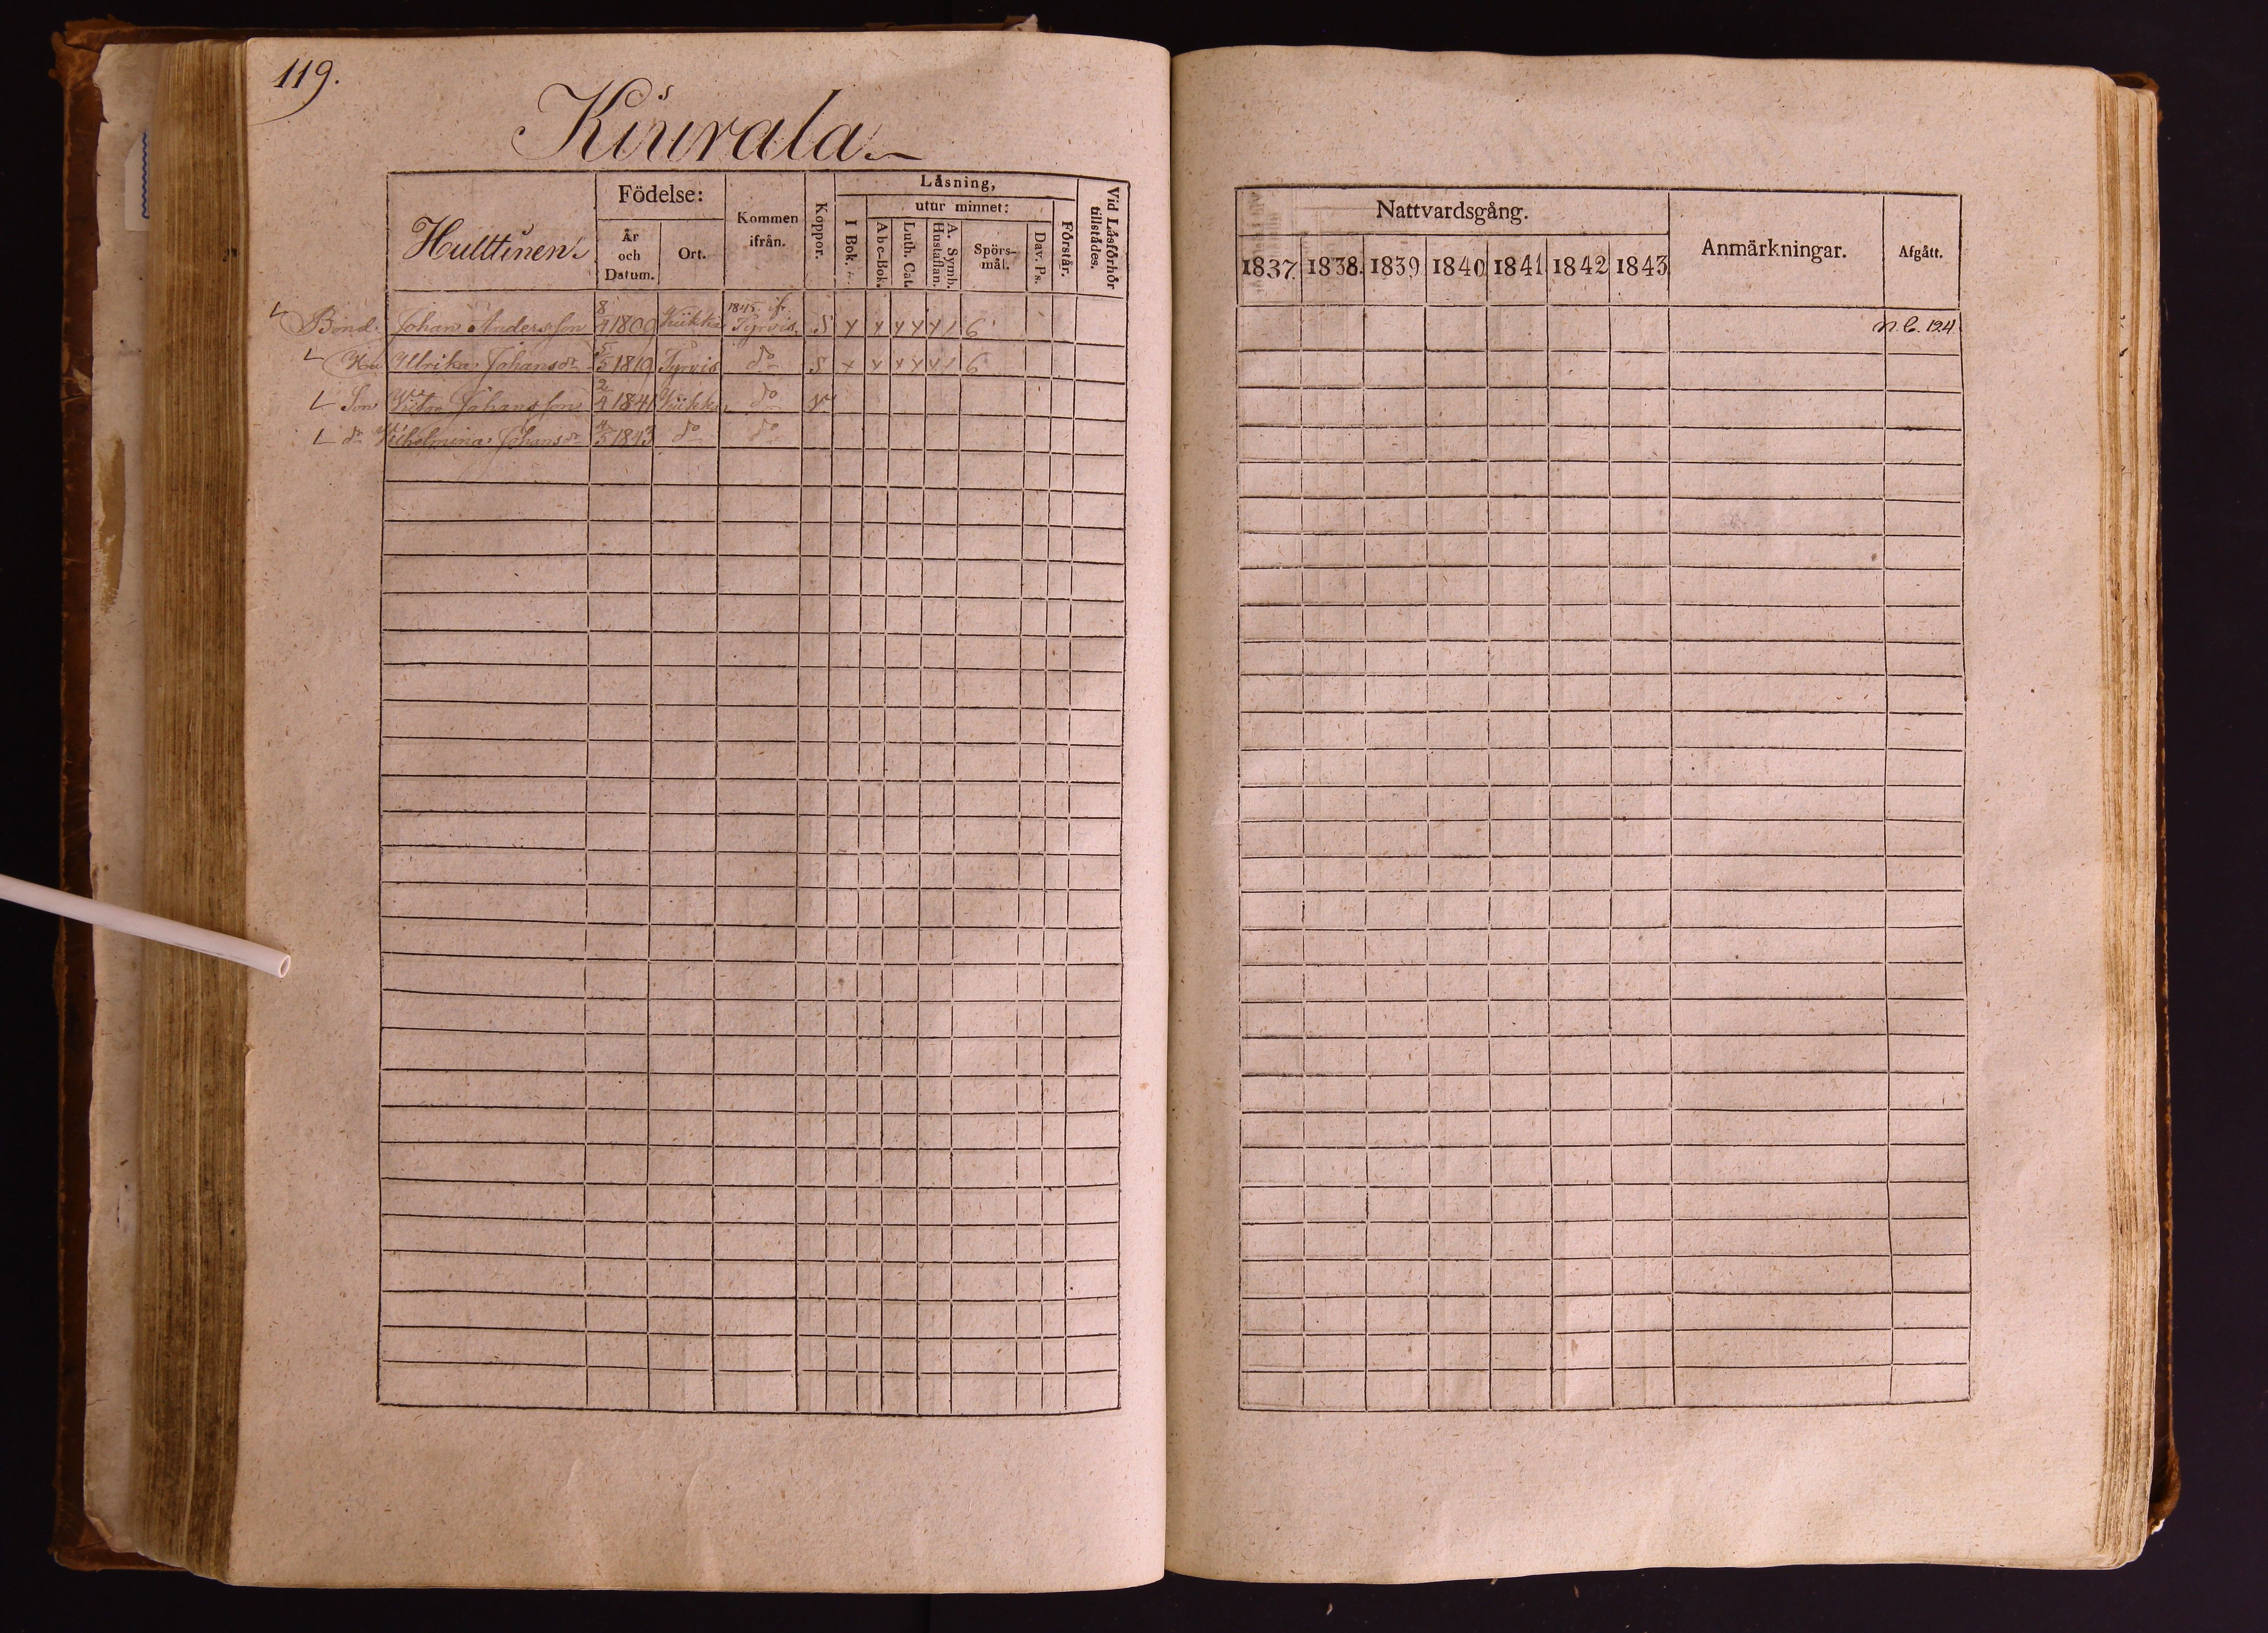 119.
Kiurala.
Hulttinen.
Födelse:
År och Datum.
Ort.
Kommen ifrån.
Koppor.
Läsning,
I Bok.
utur minnet:
Abc-Bok.
Luth. Cat.
A. Symb. Hustaflan.
Spörs-mål.
Dav. Ps.
Förstår.
Vid Läsförhör tillstädes.
Nattvardsgång.
1837. 1838. 1839 1840 1841 1842 1843
Anmärkningar.
Afgått.
Bond. Johan Andersson 8/4 1809 Kiikka 1845 fr. Tyrvis. S x x x x x 1 6 n. b. 124
Hu Ulrika Johansdr 5/5 1819 Tyrvis do S x x x x x 1 6
Son Victor Johansson 2/4 1841 Kiikka do v
dr Vilhelmina Johansdr 4/5 1843 do do